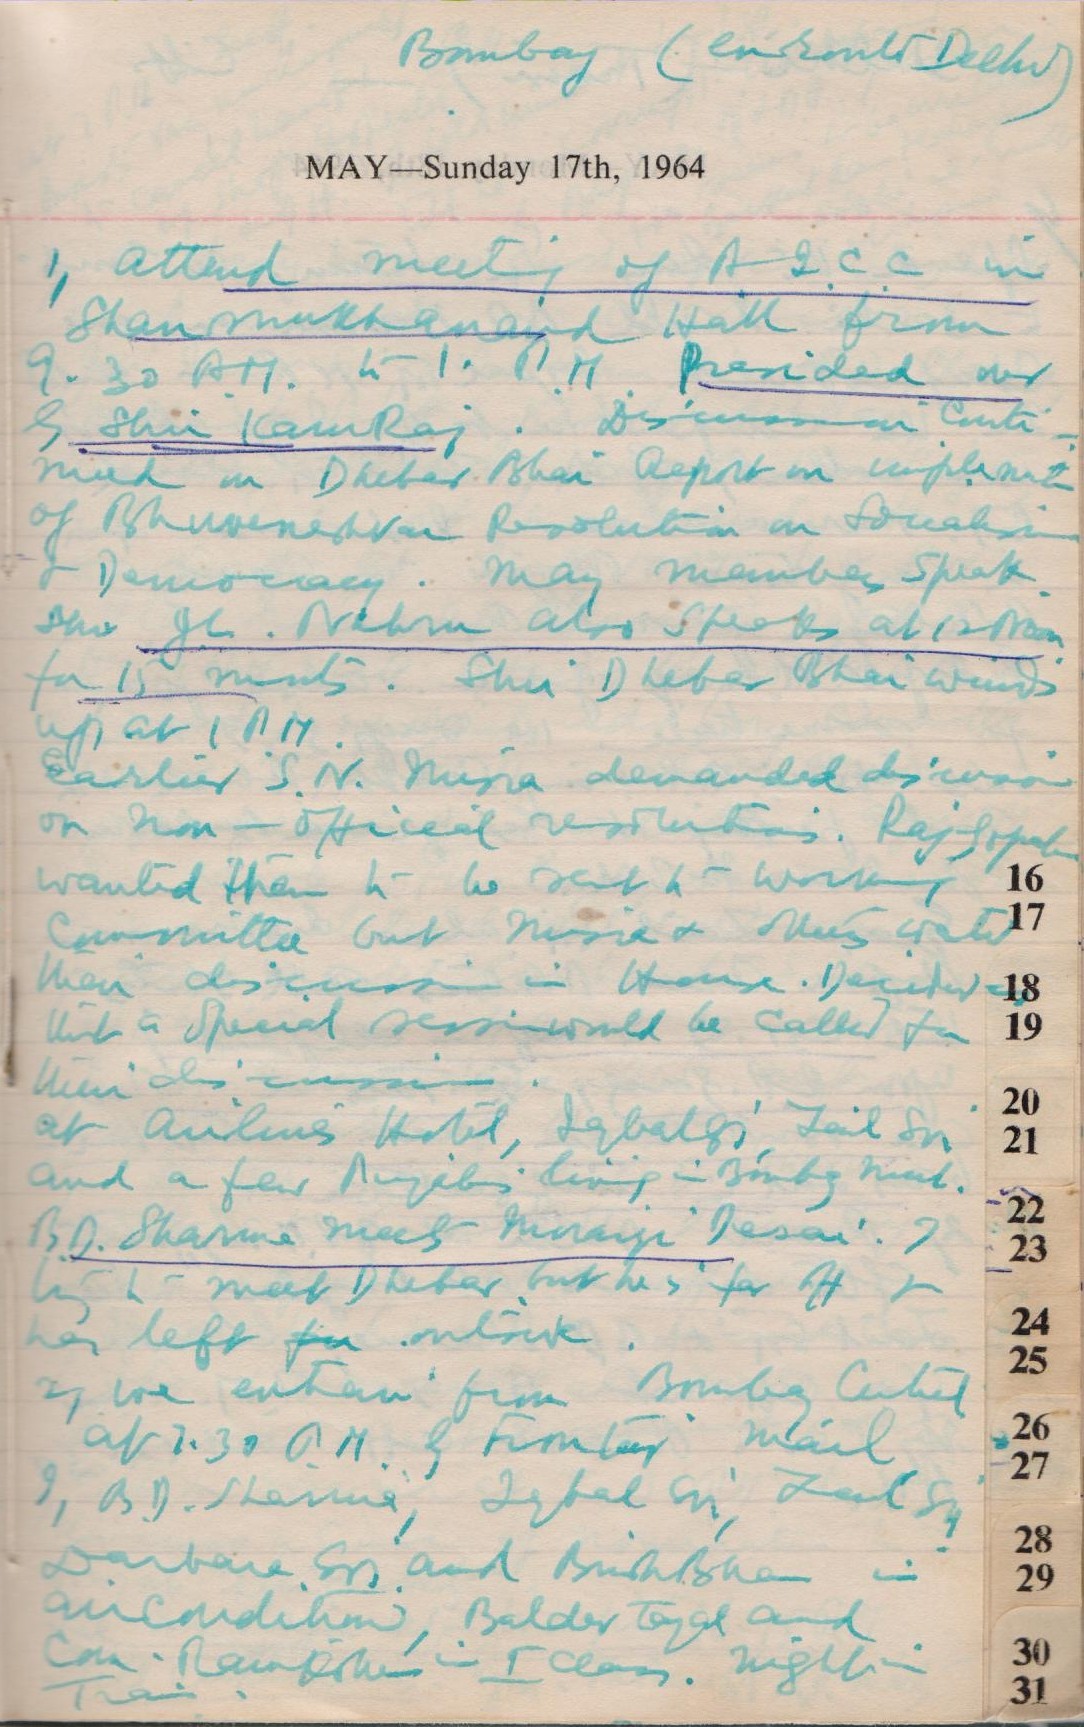 Bombay (enroute Delhi)
MAY—Sunday 17th, 1964
1, Attend meeting of A I C C in
Shanmukhanand Hall from
9.30 AM. to 1. P.M. Presided over
by Shri KamRaj. Discussion Conti-
nued on Dhebar Bhai Report on
of Bhuveneshvar Resolution on Socialism
& Democracy. Many members Speak.
Shri JL. Nehru also Speaks at 12 Noon
for 15 minuts. Shri Dhebar Bhai winds
up at 1 P.M.
Earlier S.N. Misra demanded discussion
on non-official resolutions. Raj Gopalan
wanted them to be sent to working
Committee but Misra & others wanted
their discussion in House. Decided
that a Special session would be called for
their discussion.
at Airlines Hotel, Iqbal Sj, Zail Sn
and a few Punjabis living in Bombay meet.
B.D. Sharma meets Morarji Desai. I
try to meet Dhebar but he is far off &
has left for outside.
2, we entrain from Bombay Central
at 7.30 P.M. by Frontier Mail
I, B.D. Sharma, Iqbal Sn, Zail Sn,
Darbara Sn and BrishBhan in
aircondition, Baldev Tayal and
Com. RamKishen in I class. Night in
Train.
16
17
18
19
20
21
22
23
24
25
26
27
28
29
30
31